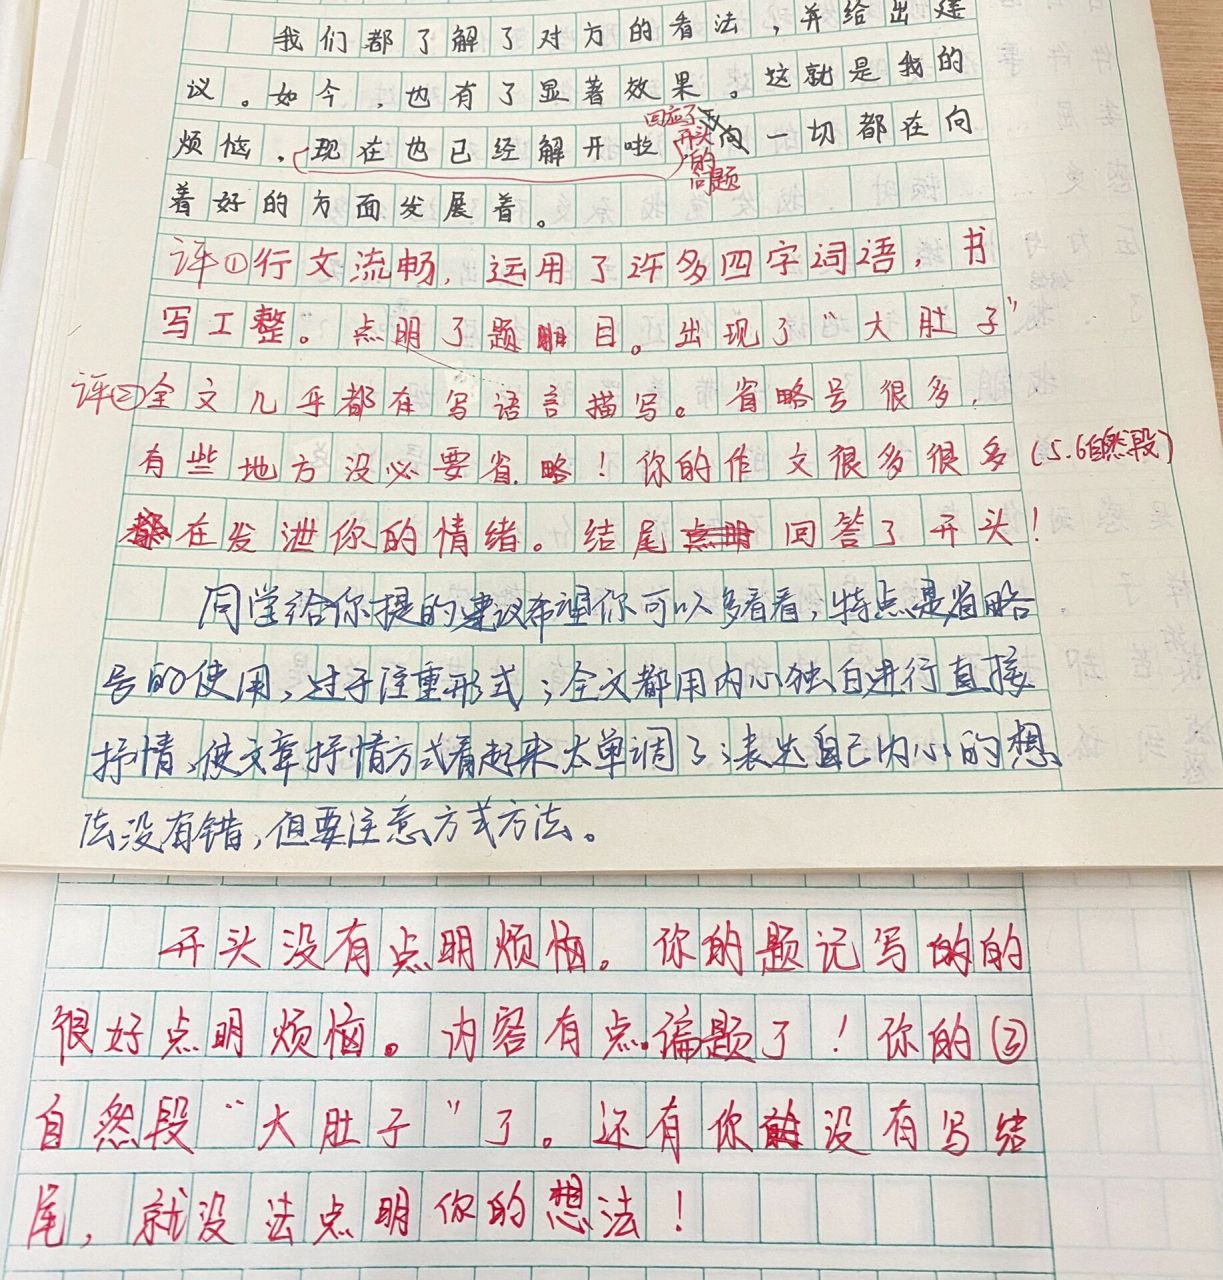 我们都了解了对方的看法，并给出建
议。如今，也有了显著效果。这就是我的
烦恼，现在也已经解开啦，向一切都在向
回应了开头的问题
着好的方面发展着。
评①行文流畅，运用了许多四字词语，书
写工整。点明了题目。出现了“大肚子”
评②全文几乎都在写语言描写。省略号很多，
有些地方没必要省略！你的作文很多很多（5.6自然段）
在发泄你的情绪。结尾回答了开头！
同学给你提的建议希望你可以多看看，特点是省略
号的使用，过于注重形式；全文都用内心独白进行直接
抒情，使文章抒情方式看起来太单调了；表达自己内心的想
法没有错，但要注意方式方法。
开头没有点明烦恼。你的题记写的的
很好点明烦恼。内容有点偏题了！你的③
自然段“大肚子”了。还有你没有写结
尾，就没法点明你的想法！